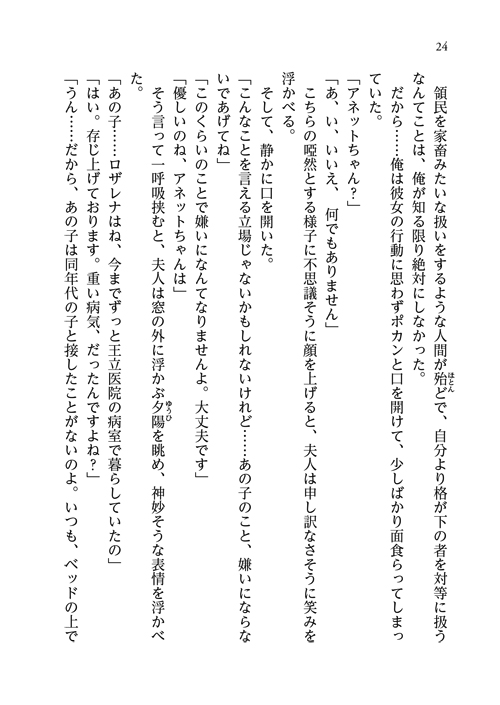 24
領民を家畜みたいな扱いをするような人間が殆どで、自分より格が下の者を対等に扱う
なんてことは、俺が知る限り絶対にしなかった。
だから……俺は彼女の行動に思わずポカンと口を開けて、少しばかり面食らってしまっ
ていた。
「アネットちゃん?」
「あ、い、いいえ、何でもありません」
こちらの啞然とする様子に不思議そうに顔を上げると、夫人は申し訳なさそうに笑みを
浮かべる。
そして、静かに口を開いた。
「こんなことを言える立場じゃないかもしれないけれど……あの子のこと、嫌いにならな
いであげてね」
「このくらいのことで嫌いになんてなりませんよ。大丈夫です」
「優しいのね、アネットちゃんは」
そう言って一呼吸挟むと、夫人は窓の外に浮かぶ夕陽を眺め、神妙そうな表情を浮かべ
た。
「あの子……ロザレナはね、今までずっと王立医院の病室で暮らしていたの」
「はい。存じ上げております。重い病気、だったんですよね?」
「うん……だから、あの子は同年代の子と接したことがないのよ。いつも、ベッドの上で
ほとん
ゆうひ